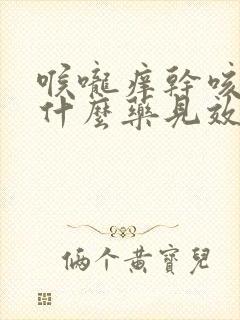 喉嚨痒幹咳
什麼藥見效
俩个黄寶兒